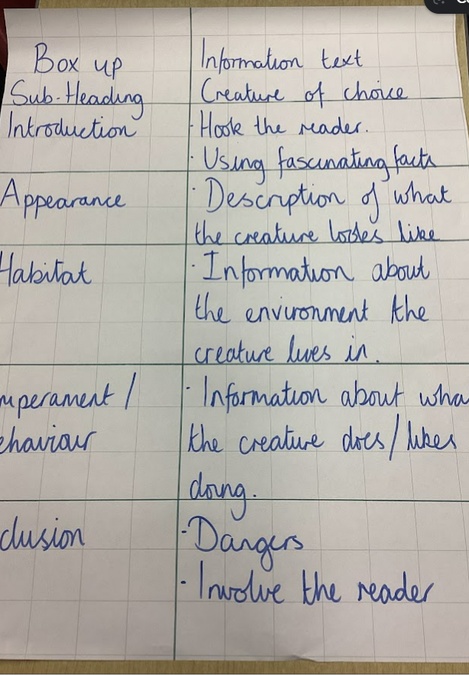 Box up Information text
Sub-Heading Creature of choice
Introduction · Hook the reader.
· Using fascinating facts
Appearance · Description of what
the creature looks like
Habitat · Information about
the environment the
creature lives in.
mperament / · Information about wha
ehaviour the creature does/likes
doing.
clusion · Dangers
· Involve the reader